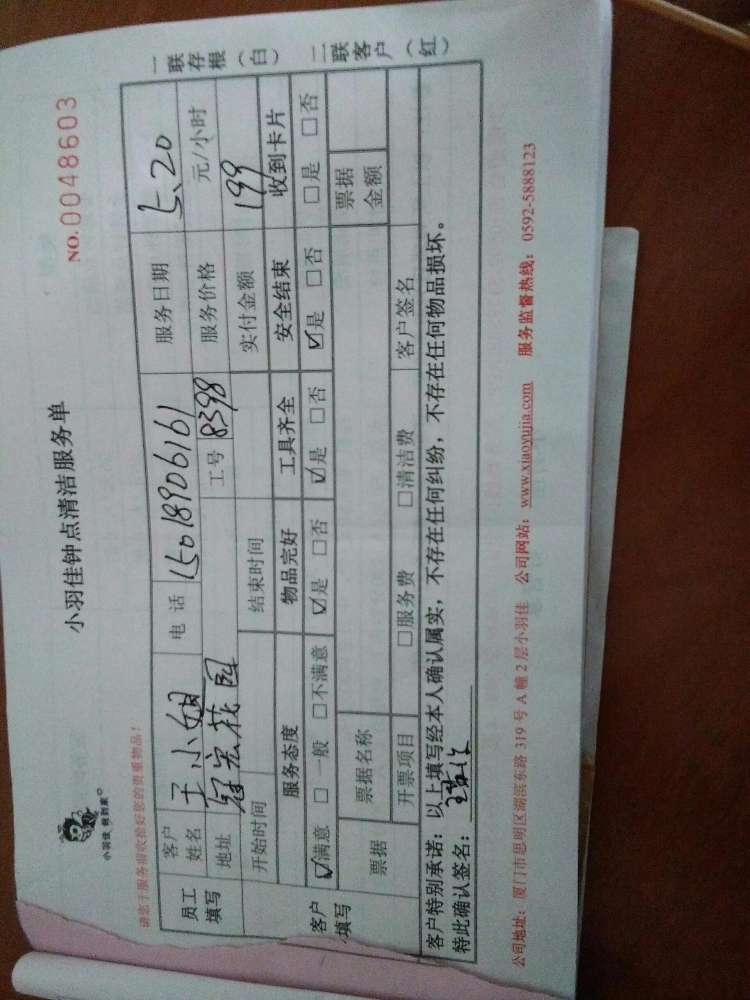 小羽佳 帮到家
小羽佳钟点清洁服务单
请您于服务前收拾好您的贵重物品！
NO.0048603
员工填写 客户姓名 王小姐 电话 15018906161 服务日期 5.20
地址 冠宏花园 工号 8398 服务价格 元/小时
开始时间 结束时间 实付金额 199
客户填写 服务态度 物品完好 工具齐全 安全结束 收到卡片
☑满意 □一般 □不满意 ☑是 □否 ☑是 □否 ☑是 □否 □是 □否
票据 票据名称 票据金额
开票项目 □服务费 □清洁费 客户签名
客户特别承诺：以上填写经本人确认属实，不存在任何纠纷，不存在任何物品损坏。
特此确认签名：
公司地址：厦门市思明区湖滨东路 319 号 A 幢 2 层小羽佳 公司网站：www.xiaoyujia.com 服务监督热线：0592-5888123
一联存根（白） 二联客户（红）